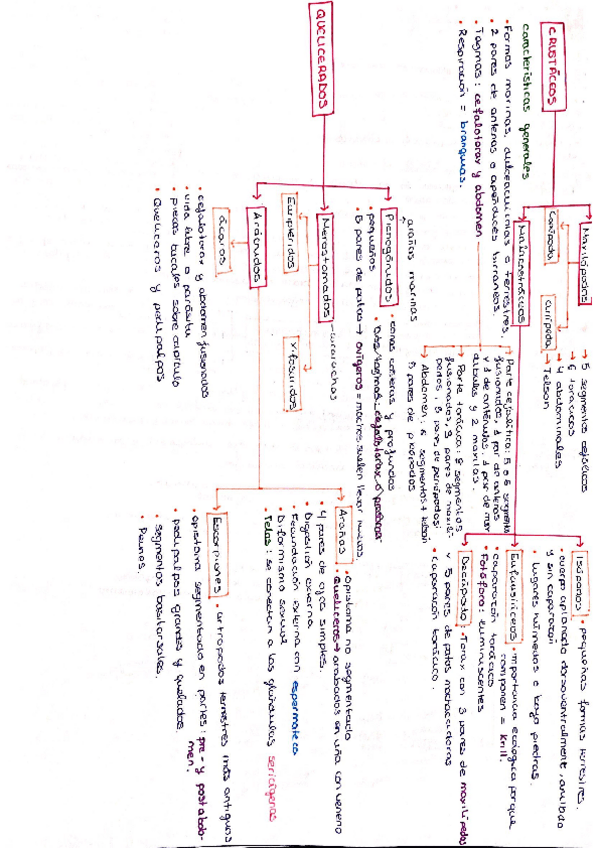 CRUSTÁCEOS
características generales
• Formas marinas, dulceacuícolas o terrestres.
• 2 pares de antenas o apéndices birrameos.
• Tagmas: cefalotorax y abdomen
• Respiración = branquias.
Maxilópodos
Copépoda
Cirrípeda
→ 5 segmentos cefálicos
→ 6 torácicos
→ 4 abdominales
→ Telson
Malacostráceos
Parte cefálica: 5 o 6 segmentos
fusionados, 1 par de antenas
y 1 de anténulas, 1 par de man-
díbulas y 2 maxilas.
Parte torácica: 8 segmentos
fusionados, 3 pares de maxilí-
pedos, 5 pares de pereiópodos
Abdomen: 6 segmentos + telson
5 pares de pleópodos
Isópodos • pequeñas formas terrestres.
• cuerpo aplanado dorsoventralmente, anillado
y sin caparazón
• lugares húmedos o bajo piedras.
Eufausiáceos • importancia ecológica porque
componen = krill.
• caparazón torácico
• Fotóforo: luminiscentes
Decápoda • Tórax con 3 pares de maxilípedos
y 5 pares de patas marchadoras
• caparazón torácico.
QUELICERADOS
arañas marinas
Picnogónidos • zonas costeras y profundas
• pequeños • Dos tagmas: cefalotorax o prosoma
• 5 pares de patas → ovígeros = machos suelen llevar huevos.
Merostomados - cucarachas
Euriptéridos
Xifosuridos
Arácnidos
Ácaros
• cefalotorax y abdomen fusionados
• vida libre o parásita
• piezas bucales sobre capítulo
• Quelíceros y pedipalpos
Arañas • opistoma no segmentado
• Quelíceros → acabados en uña con veneno
• 4 pares de ojos simples.
• Digestión externa
• Fecundación externa con espermateca
• Dimorfismo sexual
• Telas: se conectan a las glándulas sericígenas
Escorpiones • artrópodos terrestres más antiguos
• opistoma segmentado en partes: pre- y postabdo-
men.
• pedipalpos grandes y quelados.
• segmentos basitarsales.
• Peines.